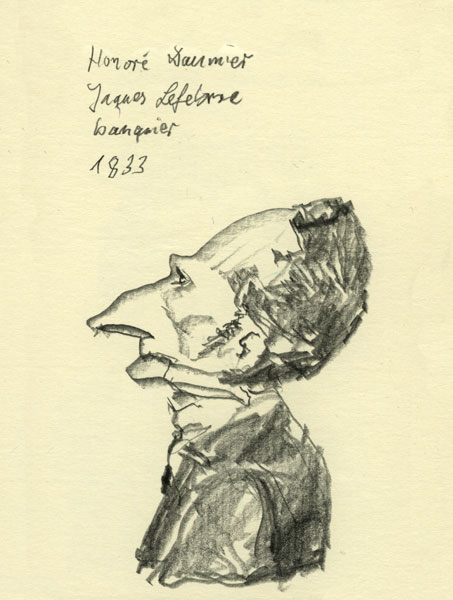 Honoré Daumier
Jaques Lefebvre
banquier
1833